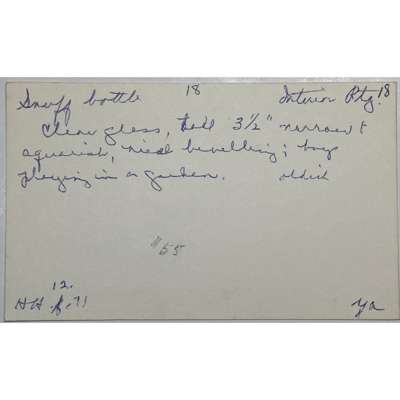 Snuff bottle 18 Interior Ptg. 18
Clear glass, tall 3½" narrow &
squarish, nice bevelling; boys
playing in a garden. oldish
55
12.
HH 71
Ya